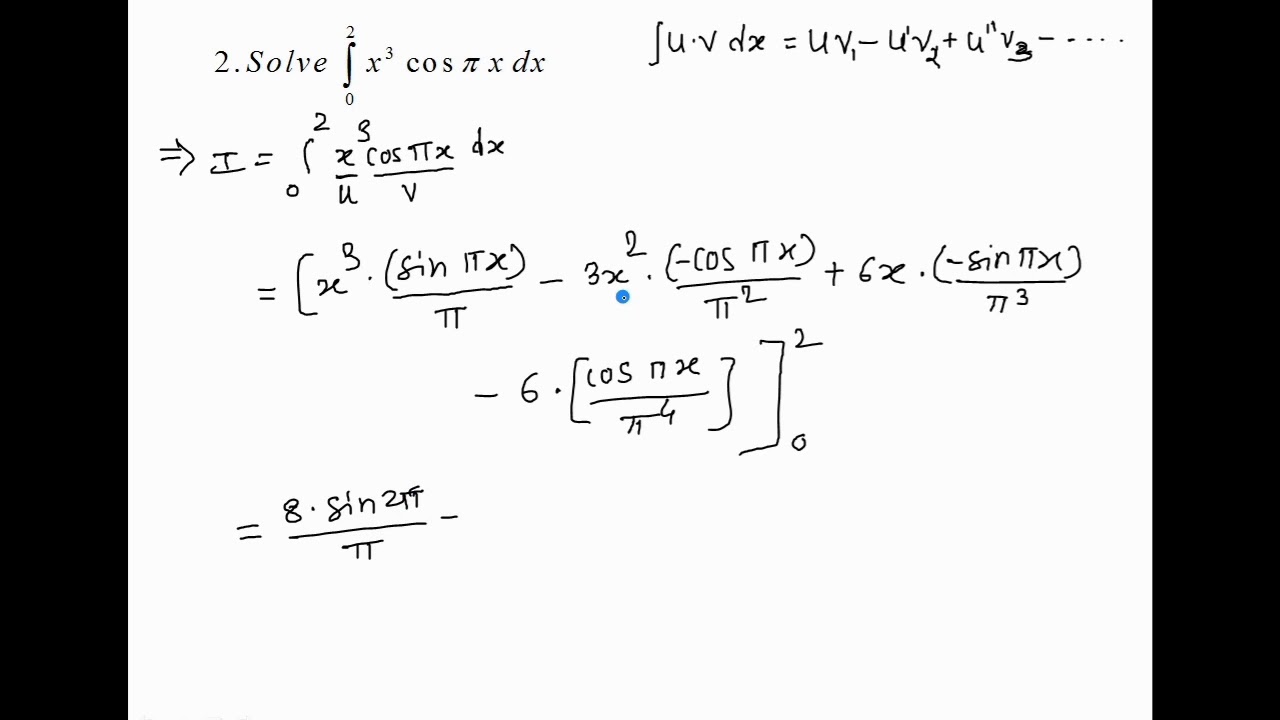 2. Solve ∫₀² x³ cos π x dx
∫u·v dx = uv₁ − u'v₂ + u''v₃ − ·····
⇒ I = ∫₀² x³ cos πx dx
u v
= [x³ · (sin πx)/π − 3x² · (−cos πx)/π² + 6x · (−sin πx)/π³
− 6 · [cos πx/π⁴]]₀²
= 8 · sin 2π/π −